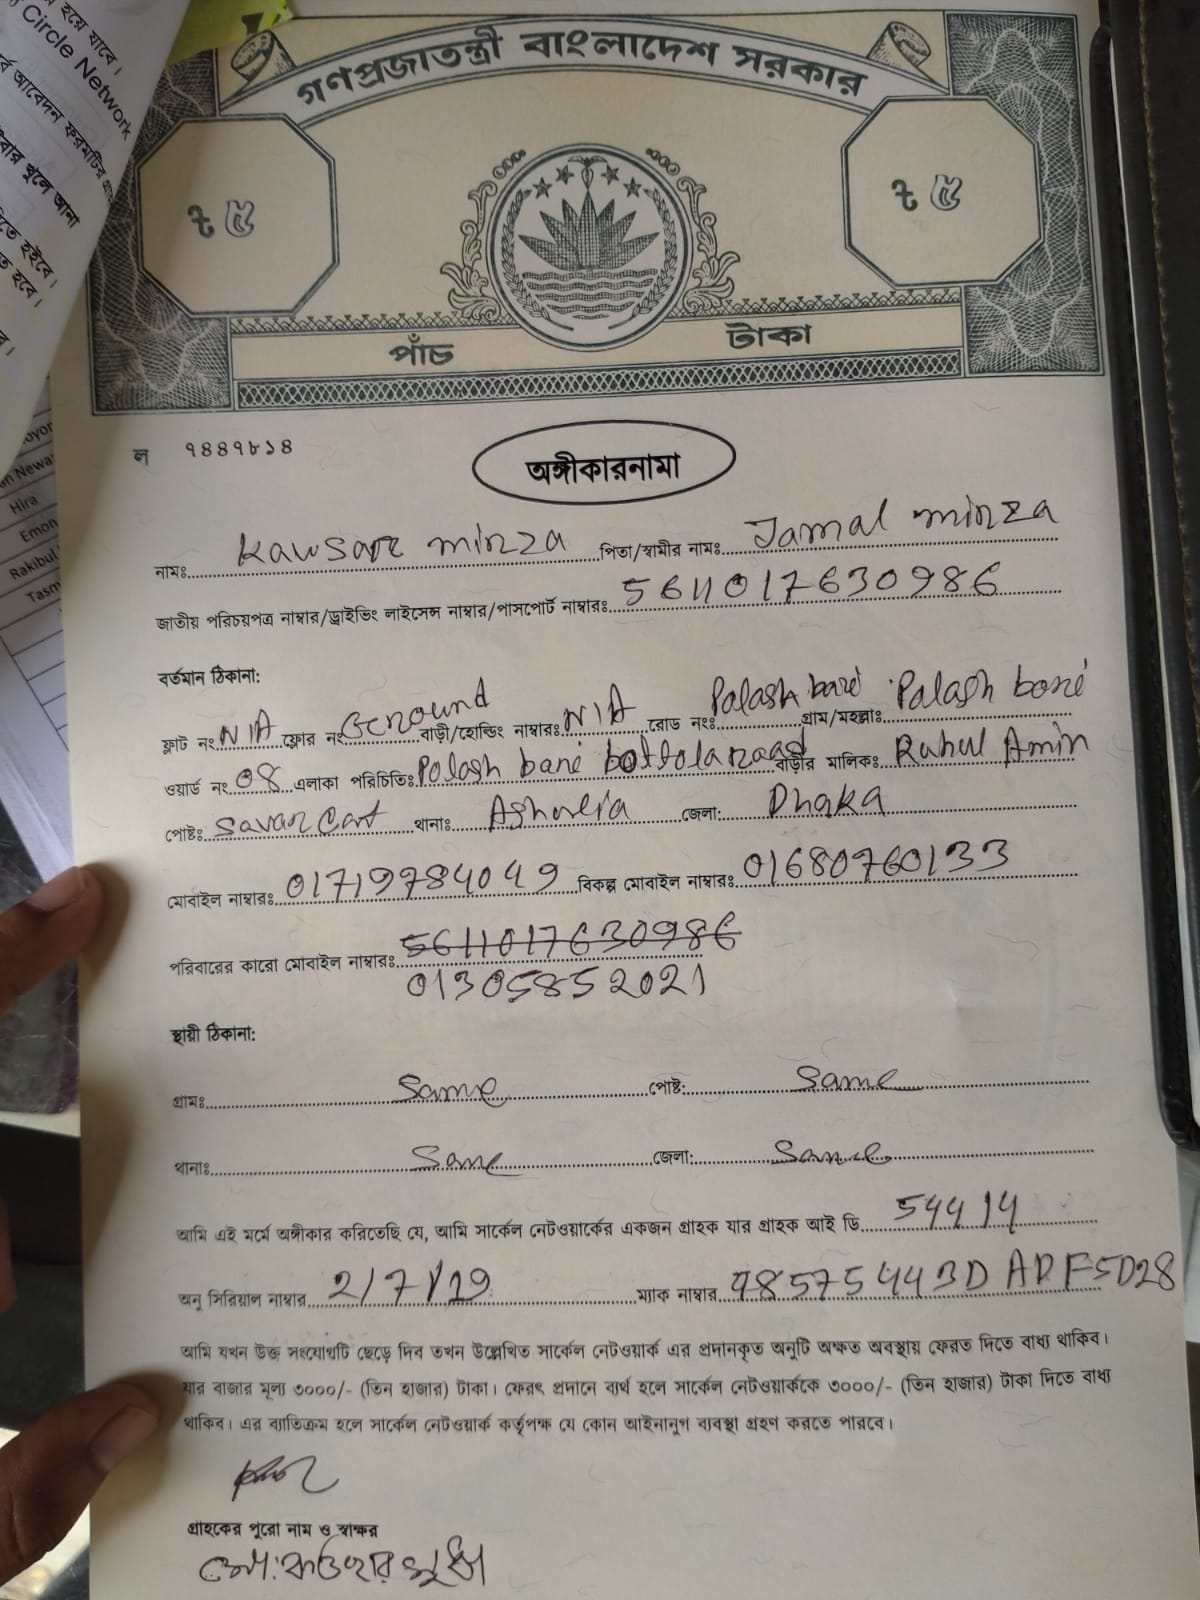 হয়ে যাবে।
Circle Network
আবেদন ফরমটির
বার খুলে আনা
দিতে হইবে।
হবে।
Hira
Emon
Rakibul
গণপ্রজাতন্ত্রী বাংলাদেশ সরকার
৳ ৫ ৳ ৫
পাঁচ টাকা
ল ৭৪৪৭৮১৪
অঙ্গীকারনামা
নামঃ Kawsar mirza পিতা/স্বামীর নামঃ Jamal mirza
জাতীয় পরিচয়পত্র নাম্বার/ড্রাইভিং লাইসেন্স নাম্বার/পাসপোর্ট নাম্বারঃ 5611017630986
বর্তমান ঠিকানা:
ফ্লাট নং N/A ফ্লোর নং Ground বাড়ী/হোল্ডিং নাম্বারঃ N/A রোড নংঃ Palash bari গ্রাম/মহল্লাঃ Palash bari
ওয়ার্ড নং 08 এলাকা পরিচিতিঃ Palash bari bottola road বাড়ীর মালিকঃ Ruhul Amin
পোষ্টঃ Savar Cant থানাঃ Ashulia জেলা: Dhaka
মোবাইল নাম্বারঃ 01719784049 বিকল্প মোবাইল নাম্বারঃ 01680760133
পরিবারের কারো মোবাইল নাম্বারঃ 5611017630986
01305852021
স্থায়ী ঠিকানা:
গ্রামঃ Same পোষ্ট: Same
থানাঃ Same জেলা: Same
আমি এই মর্মে অঙ্গীকার করিতেছি যে, আমি সার্কেল নেটওয়ার্কের একজন গ্রাহক যার গ্রাহক আই ডি 54414
অনু সিরিয়াল নাম্বার 2/7/19 ম্যাক নাম্বার
আমি যখন উক্ত সংযোগটি ছেড়ে দিব তখন উল্লেখিত সার্কেল নেটওয়ার্ক এর প্রদানকৃত অনুটি অক্ষত অবস্থায় ফেরত দিতে বাধ্য থাকিব।
যার বাজার মূল্য ৩০০০/- (তিন হাজার) টাকা। ফেরৎ প্রদানে ব্যর্থ হলে সার্কেল নেটওয়ার্ককে ৩০০০/- (তিন হাজার) টাকা দিতে বাধ্য
থাকিব। এর ব্যাতিক্রম হলে সার্কেল নেটওয়ার্ক কর্তৃপক্ষ যে কোন আইনানুগ ব্যবস্থা গ্রহণ করতে পারবে।
গ্রাহকের পুরো নাম ও স্বাক্ষর
মো: কাওছার